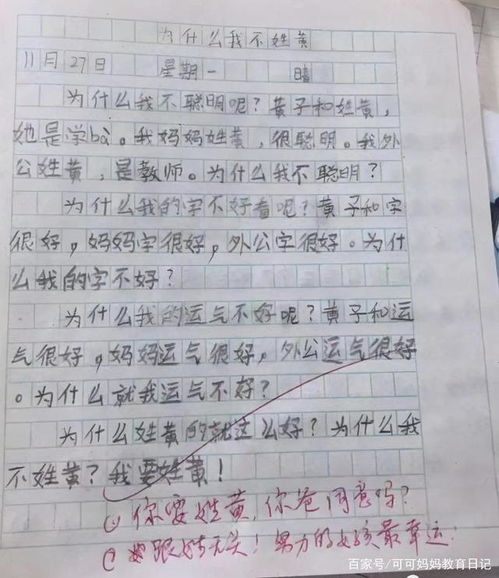 为什么我不姓黄
11月27日 星期一 晴
为什么我不聪明呢？黄子和姓黄，
她是学bà。我妈妈姓黄，很聪明。我外
公姓黄，是教师。为什么我不聪明？
为什么我的字不好看呢？黄子和字
很好，妈妈字很好，外公字很好。为什
么我的字不好？
为什么我的运气不好呢？黄子和运
气很好，妈妈运气很好，外公运气很好
。为什么就我运气不好？
为什么姓黄的就这么好？为什么我
不姓黄？我要姓黄！
你要姓黄，你爸同意吗？
跟姓无关！努力的女孩最幸运
百家号/可可妈妈教育日记